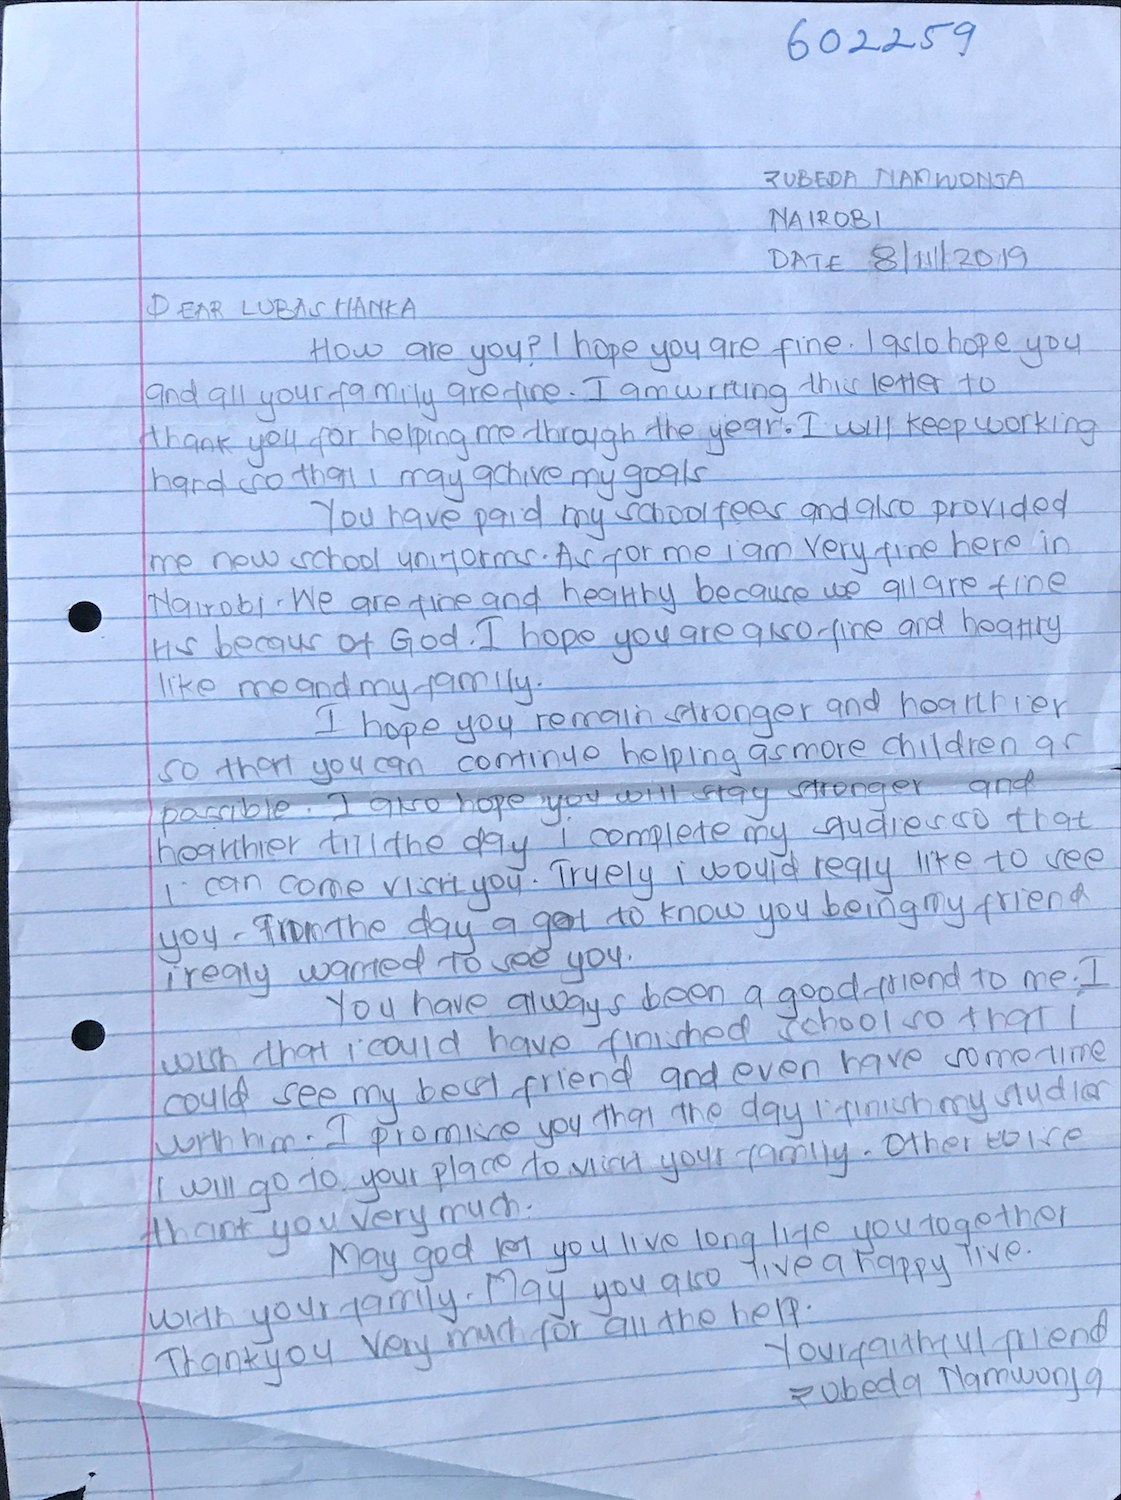 602259
ZUBEDA NAMWONJA
NAIROBI
DATE 8/11/2019
DEAR LUBASHANKA
How are you? I hope you are fine. I aslo hope you
and all your family are fine. I am writing this letter to
thank you for helping me through the year. I will keep working
hard so that i may achive my goals
You have paid my school fees and also provided
me new school uniforms. As for me i am very fine here in
Nairobi. We are fine and healthy because we all are fine
its becaus of God. I hope you are also fine and healthy
like me and my family.
I hope you remain stronger and healthier
so that you can continue helping as more children as
possible. I also hope you will stay stronger and
healthier till the day i complete my studies so that
i can come visit you. Truely i would realy like to see
you. From the day a got to know you being my friend
i realy wanted to see you.
You have always been a good friend to me. I
wish that i could have finished school so that I
could see my best friend and even have sometime
with him. I promise you that the day i finish my studies
I will go to your place to visit your family. Other wise
thank you very much.
May god let you live long life you together
with your family. May you also live a happy live.
Thank you very much for all the help.
Your faithful friend
Zubeda Namwonja